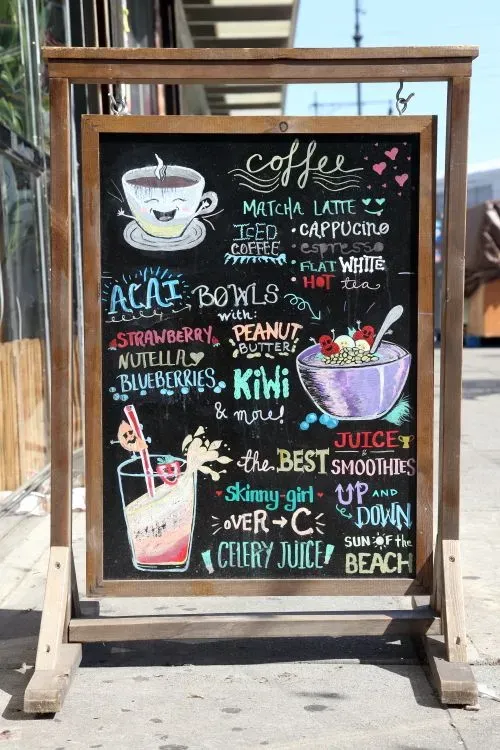 Coffee
MATCHA LATTE
ICED
COFFEE
• CAPPUCINO
espresso
FLAT WHITE
HOT tea
ACAI BOWLS
with:
STRAWBERRY
NUTELLA
BLUEBERRIES
PEANUT
BUTTER
KiWi
& more!
the BEST JUICE &
SMOOTHIES
skinny-girl
OVER → C
CELERY JUICE!
UP AND
DOWN
SUN OF the
BEACH